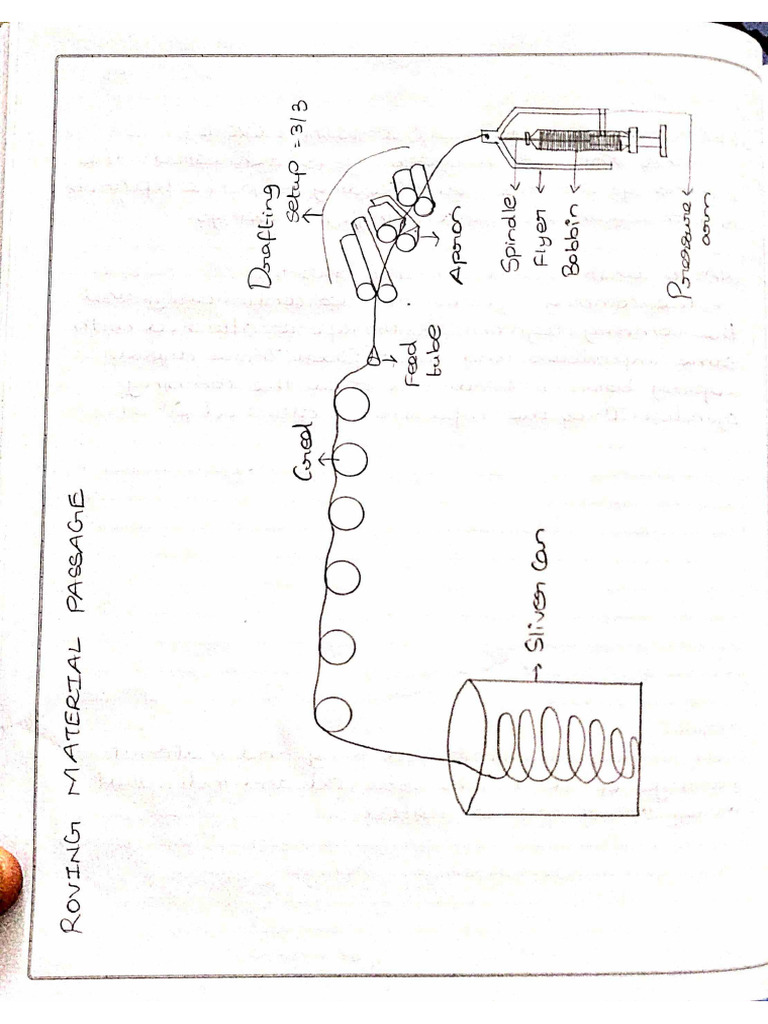 ROVING MATERIAL PASSAGE
Drafting
setup = 3/3
Creel
Feed
tube
Apron
Spindle
Flyer
Bobbin
Pressure
arm
Sliver Can